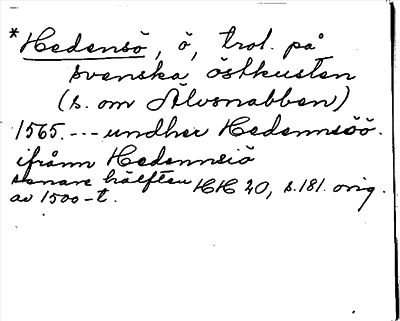 *Hedensö, ö, trol. på
svenska östkusten
(s. om Älvsnabben)
1565. --- undher Hedennsöö.
ifrånn Hedennsiö
senare hälften HH 20, s. 181. orig.
av 1500-t.